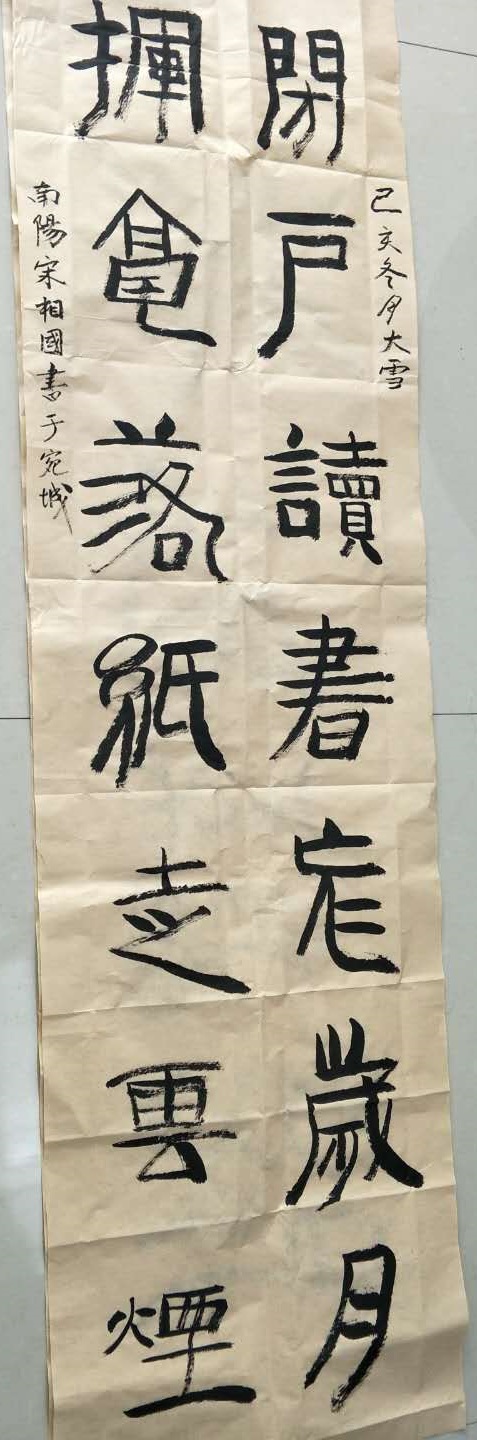 己亥冬月大雪
閉戶讀書忘歲月
揮毫落紙走雲煙
南陽宋相國書于宛城